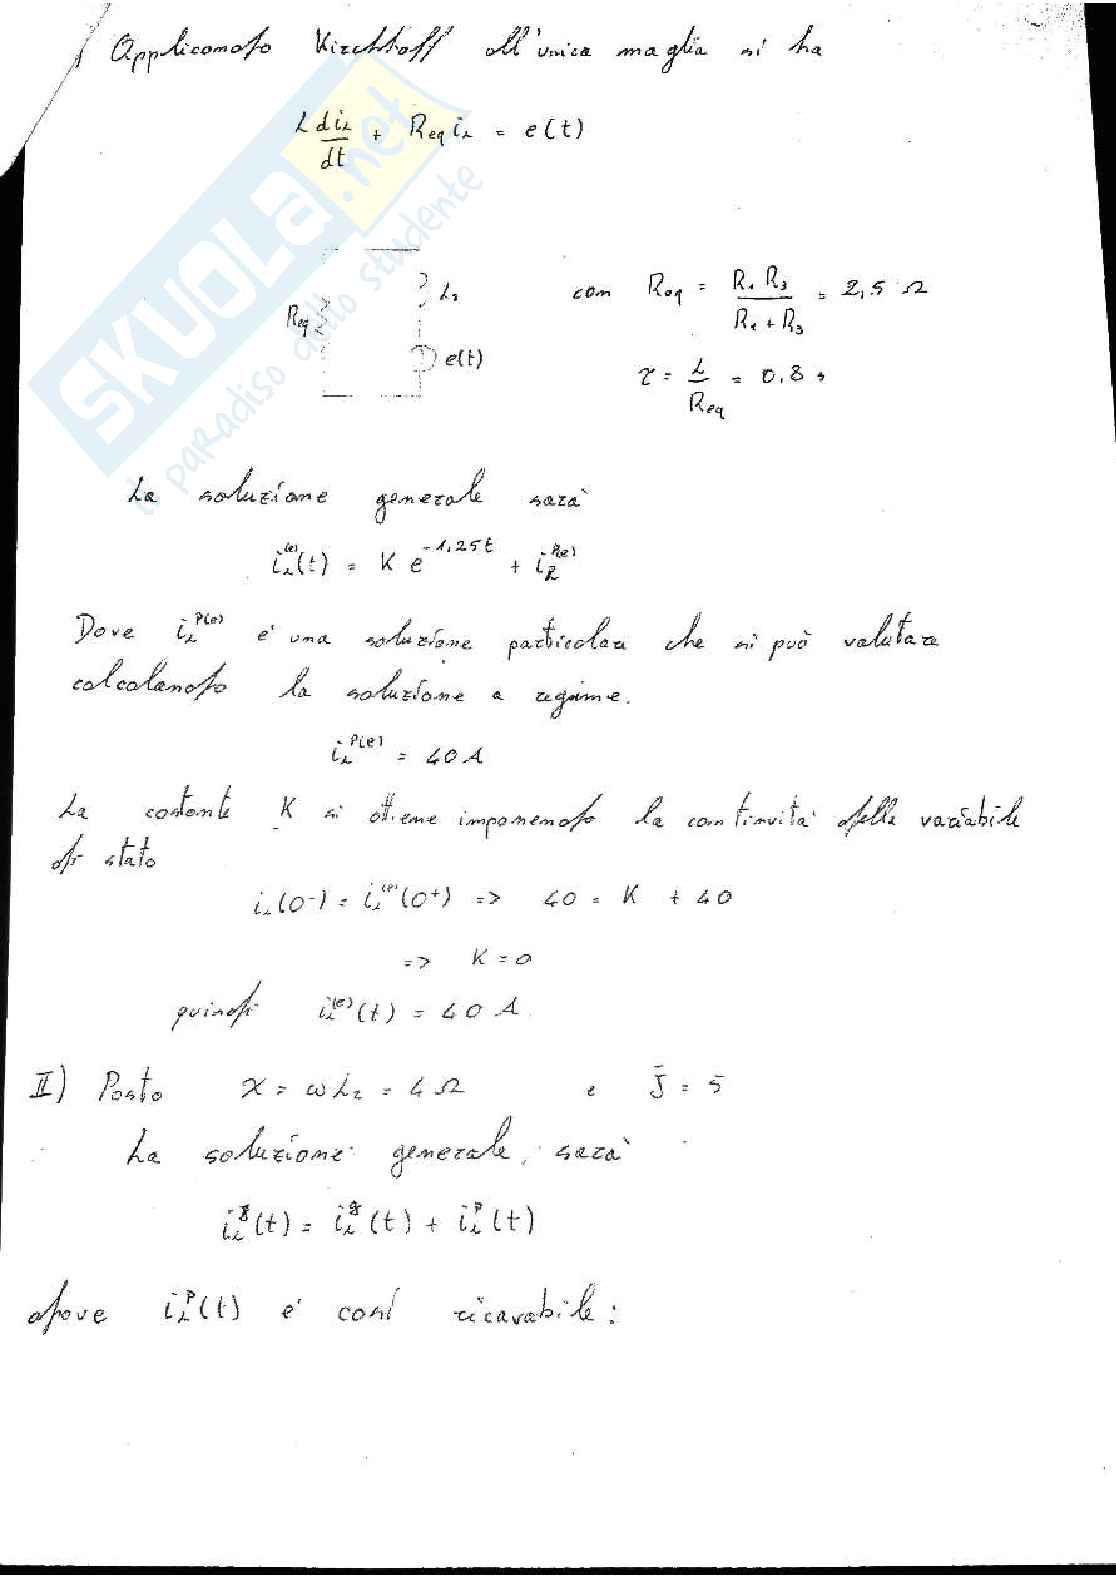 Applicando Kirchhoff all'unica maglia si ha
L di_L/dt + Req i_L = e(t)
Req
L_2
e(t)
con Req = R_1 R_3 / (R_1 + R_3) = 2,5 Ω
τ = L/Req = 0.8 s
La soluzione generale sarà
i_L^(e)(t) = K e^-1,25t + i_L^P(e)
Dove i_L^P(e) è una soluzione particolare che si può valutare
calcolando la soluzione a regime.
i_L^P(e) = 40 A
La costante K si ottiene imponendo la continuità della variabile
di stato
i_L(0-) = i_L^(e)(0+) => 40 = K + 40
=> K = 0
quindi i_L^(e)(t) = 40 A.
II) Posto X = ωL_2 = 4 Ω e J̄ = 5
La soluzione generale sarà
i_L^g(t) = i_L^g(t) + i_L^P(t)
dove i_L^P(t) è così ricavabile:
SKUOLA.net
il paradiso dello studente